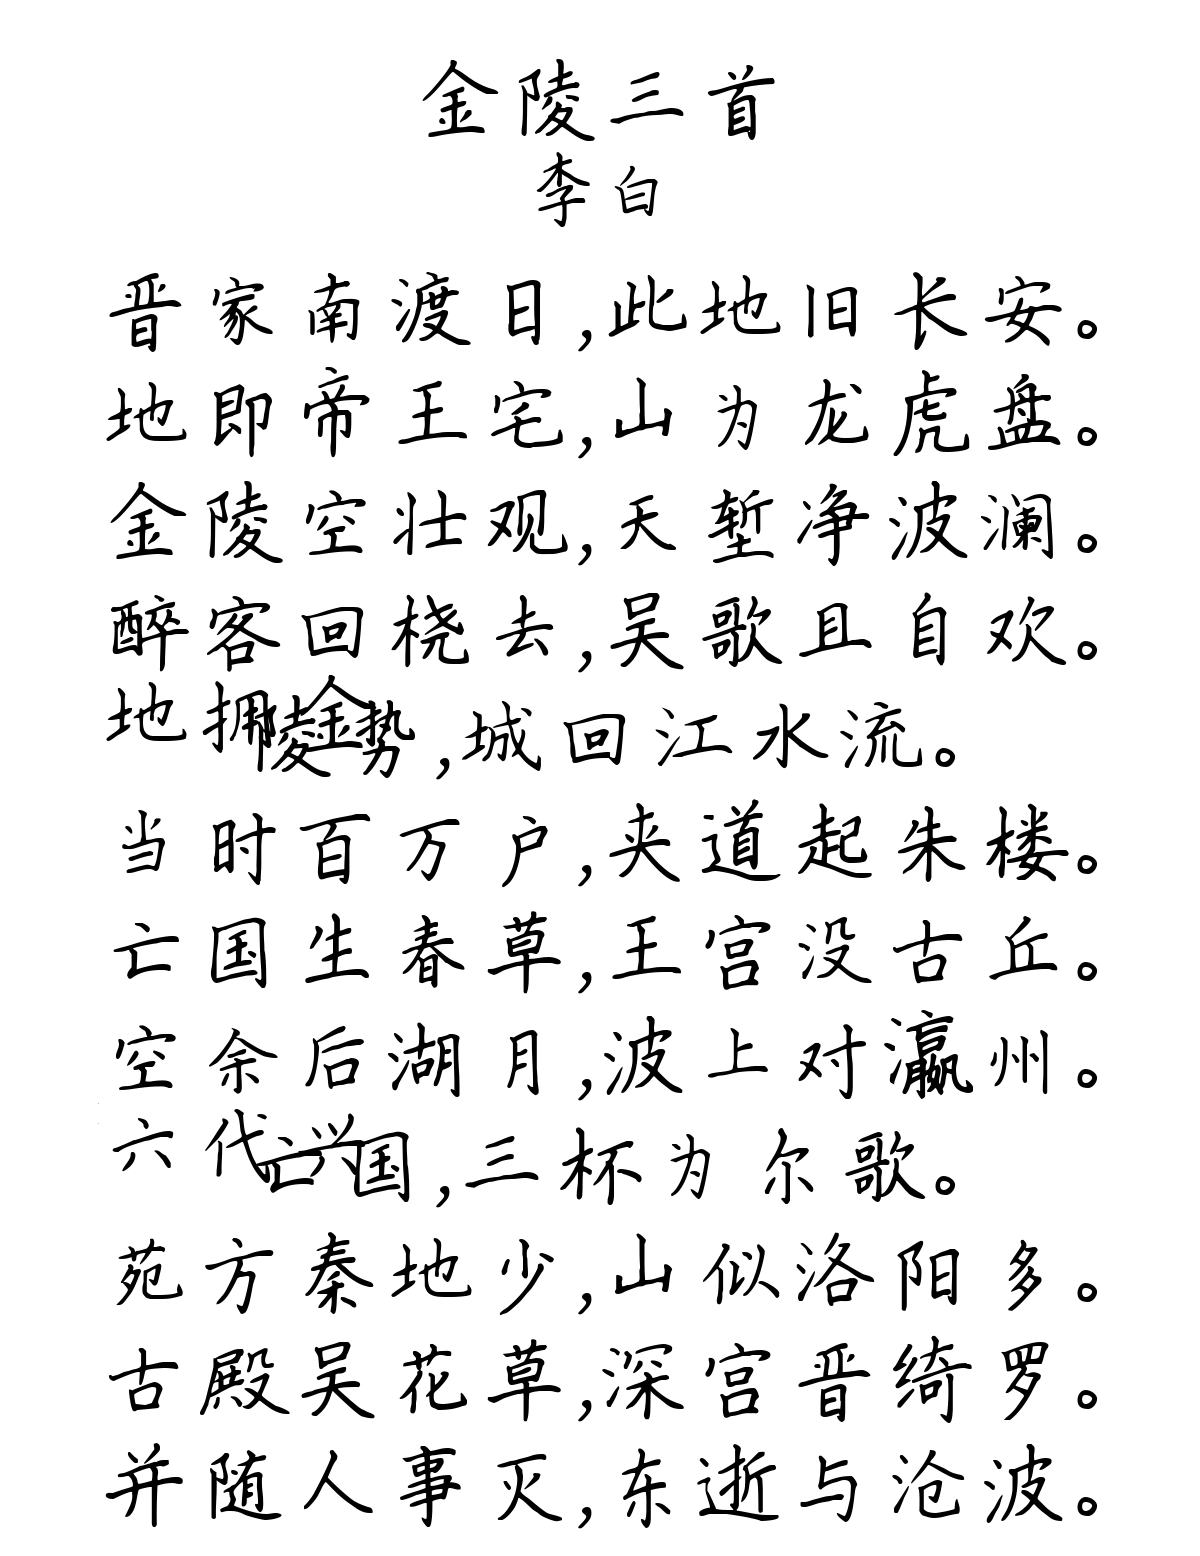 金陵三首
李白
晋家南渡日,此地旧长安。
地即帝王宅,山为龙虎盘。
金陵空壮观,天堑净波澜。
醉客回桡去,吴歌且自欢。
地拥金陵势,城回江水流。
当时百万户,夹道起朱楼。
亡国生春草,王宫没古丘。
空余后湖月,波上对瀛州。
六代兴亡国,三杯为尔歌。
苑方秦地少,山似洛阳多。
古殿吴花草,深宫晋绮罗。
并随人事灭,东逝与沧波。